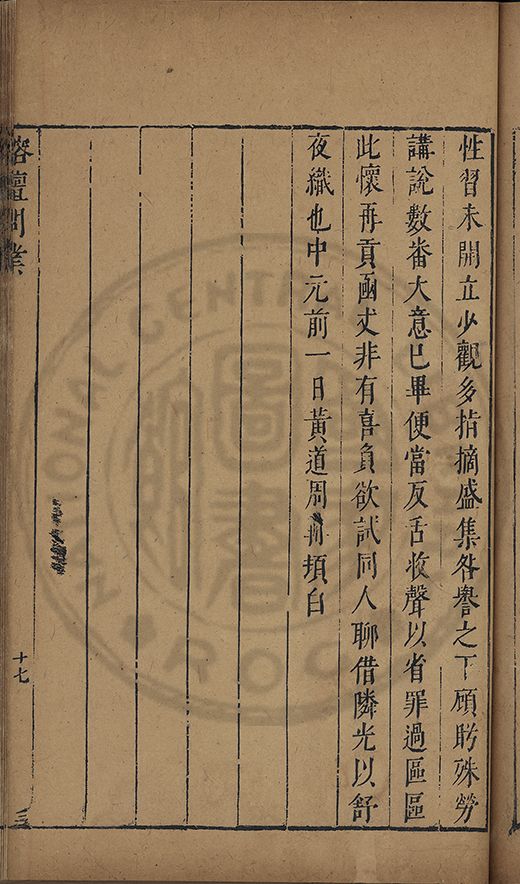 性習未開立少觀多指摘盛集咎譽之下頋眄殊勞
講說數畨大意已畢便當反舌收聲以省罪過區區
此懷再貢函丈非有喜負欲試同人聊借隣光以舒
夜織也中元前一日黃道周再頓白
榕壇問業
十七